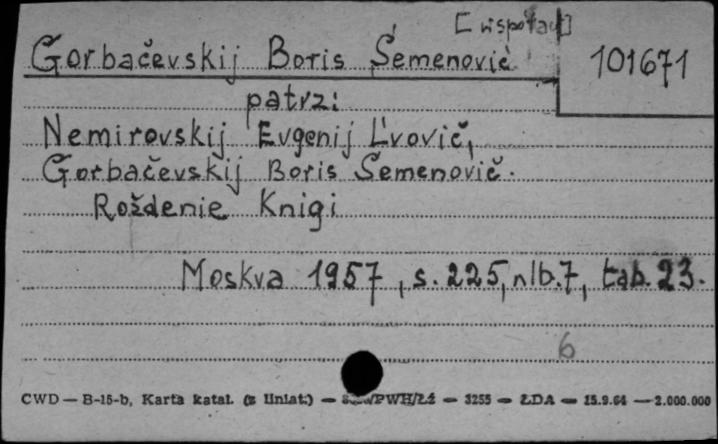 [współaut]
Gorbačevskij Boris Semenovič
101671
patrz:
Nemirovskij Evgenij L'vovič,
Gorbačevskij Boris Semenovič.
Roždenie Knigi
Moskva 1957, s. 225, nlb. 7, tab. 23.
6
CWD — B-15-b, Karta katal. (z liniat.) — PWH/Łż — 3255 — ŁDA — 15.9.64 — 2.000.000